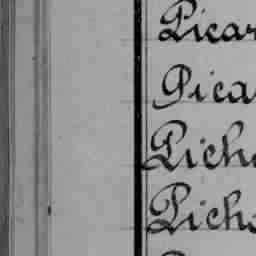 Picar
Picar
Picho
Picho